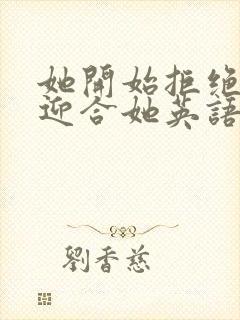 她開始拒绝
迎合她英語
劉香慈